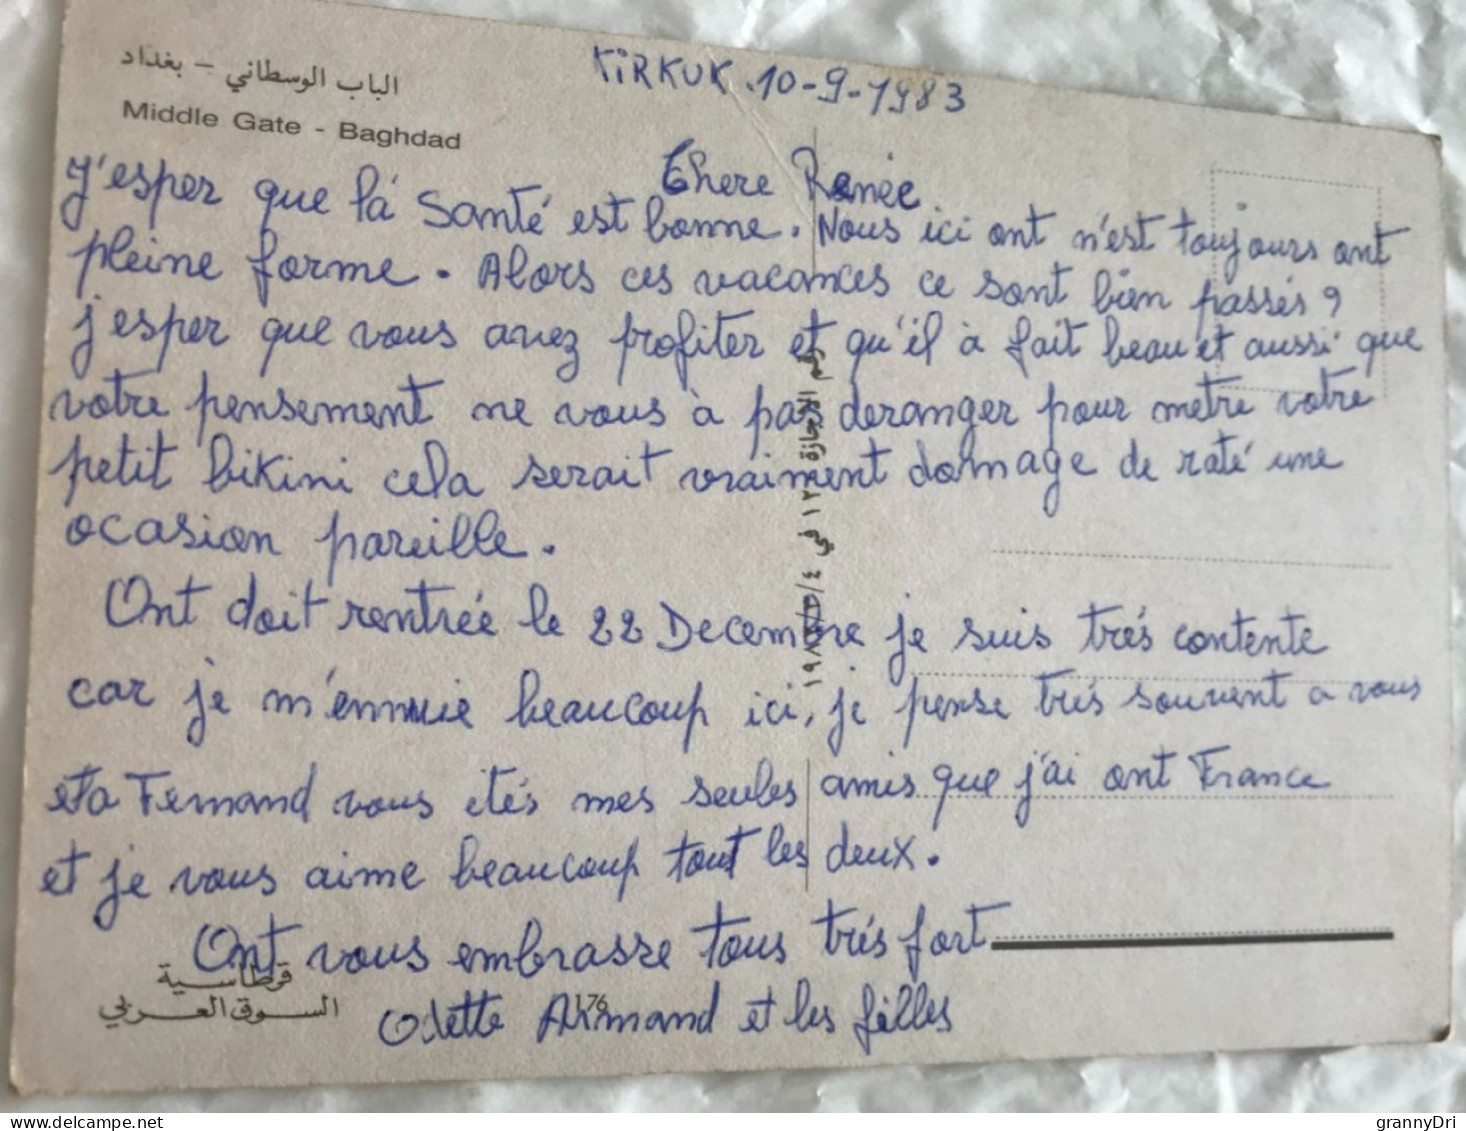 الباب الوسطاني – بغداد
Middle Gate - Baghdad
KiRKUK.10-9-1983
Chere Renée
J'esper que là santé est bonne. Nous ici ont n'est toujours ont
pleine forme. Alors ces vacances ce sont bien passés ?
j'esper que vous avez profiter et qu'il à fait beau et aussi que
votre pensement ne vous à pas deranger pour metre votre
petit bikini cela serait vraiment domage de raté une
ocasion pareille.
Ont doit rentrée le 22 Decembre je suis trés contente
car je m'ennuie beaucoup ici, je pense trés souvent a vous
et a Fernand vous étés mes seules amis que j'ai ont France
et je vous aime beaucoup tout les deux.
Ont vous embrasse tous trés fort
Odette Armand et les filles
قرطاسية
السوق العربي
176
رقم الاجازة ١٢ في
grannyDri